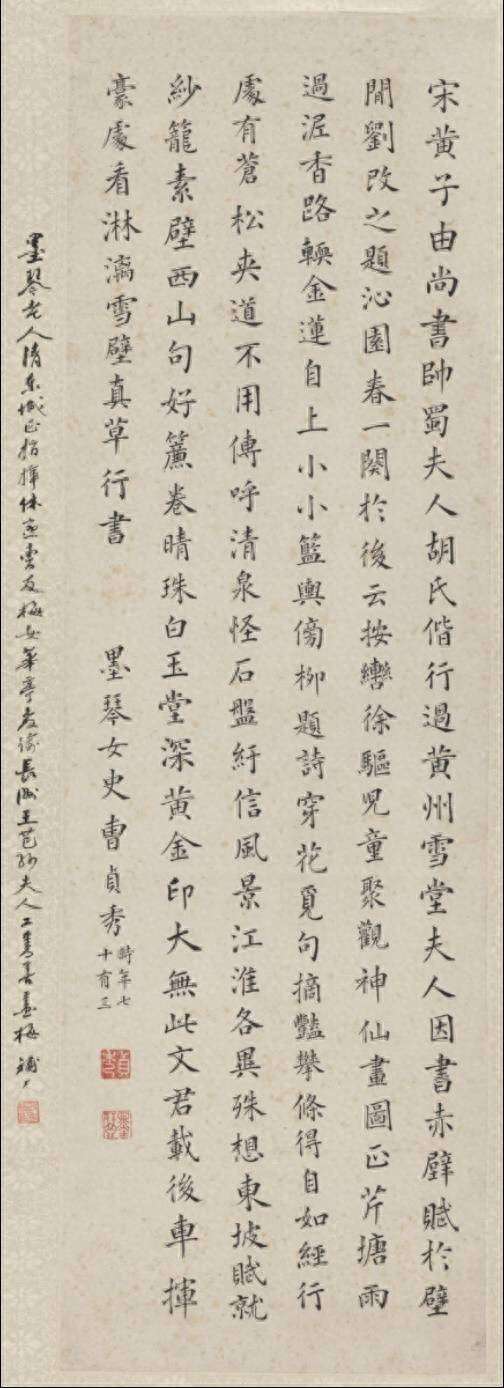 宋黄子由尚書帥蜀夫人胡氏偕行過黄州雪堂夫人因書赤壁賦於壁
間劉改之題沁園春一闋於後云按轡徐驅児童聚觀神仙畫圖正芹塘雨
過泥香路輭金蓮自上小小籃輿傍柳題詩穿花覓句摘豔攀條得自如經行
處有蒼松夹道不用傳呼清泉怪石盤紆信風景江淮各異殊想東坡賦就
紗籠素壁西山句好簾卷晴珠白玉堂深黄金印大無此文君載後車揮
豪處看淋漓雪壁真草行書
墨琴女史曹貞秀時年七十有三
墨琴老人清東城正指揮休寧雲友梅女華亭教諭長洲王芑孫夫人工書善畫梅